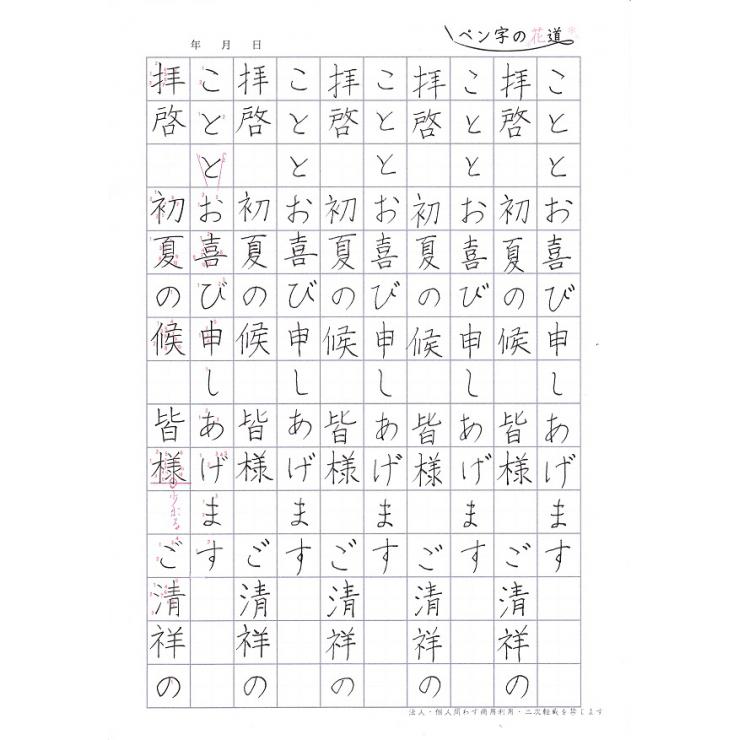 ペン字の花道
年 月 日
拝啓 初夏の候 皆様 ご清祥の
こととお喜び申しあげます
拝啓 初夏の候 皆様 ご清祥の
こととお喜び申しあげます
拝啓 初夏の候 皆様 ご清祥の
こととお喜び申しあげます
拝啓 初夏の候 皆様 ご清祥の
こととお喜び申しあげます
拝啓 初夏の候 皆様 ご清祥の
こととお喜び申しあげます
法人・個人問わず商用利用・二次転載を禁じます